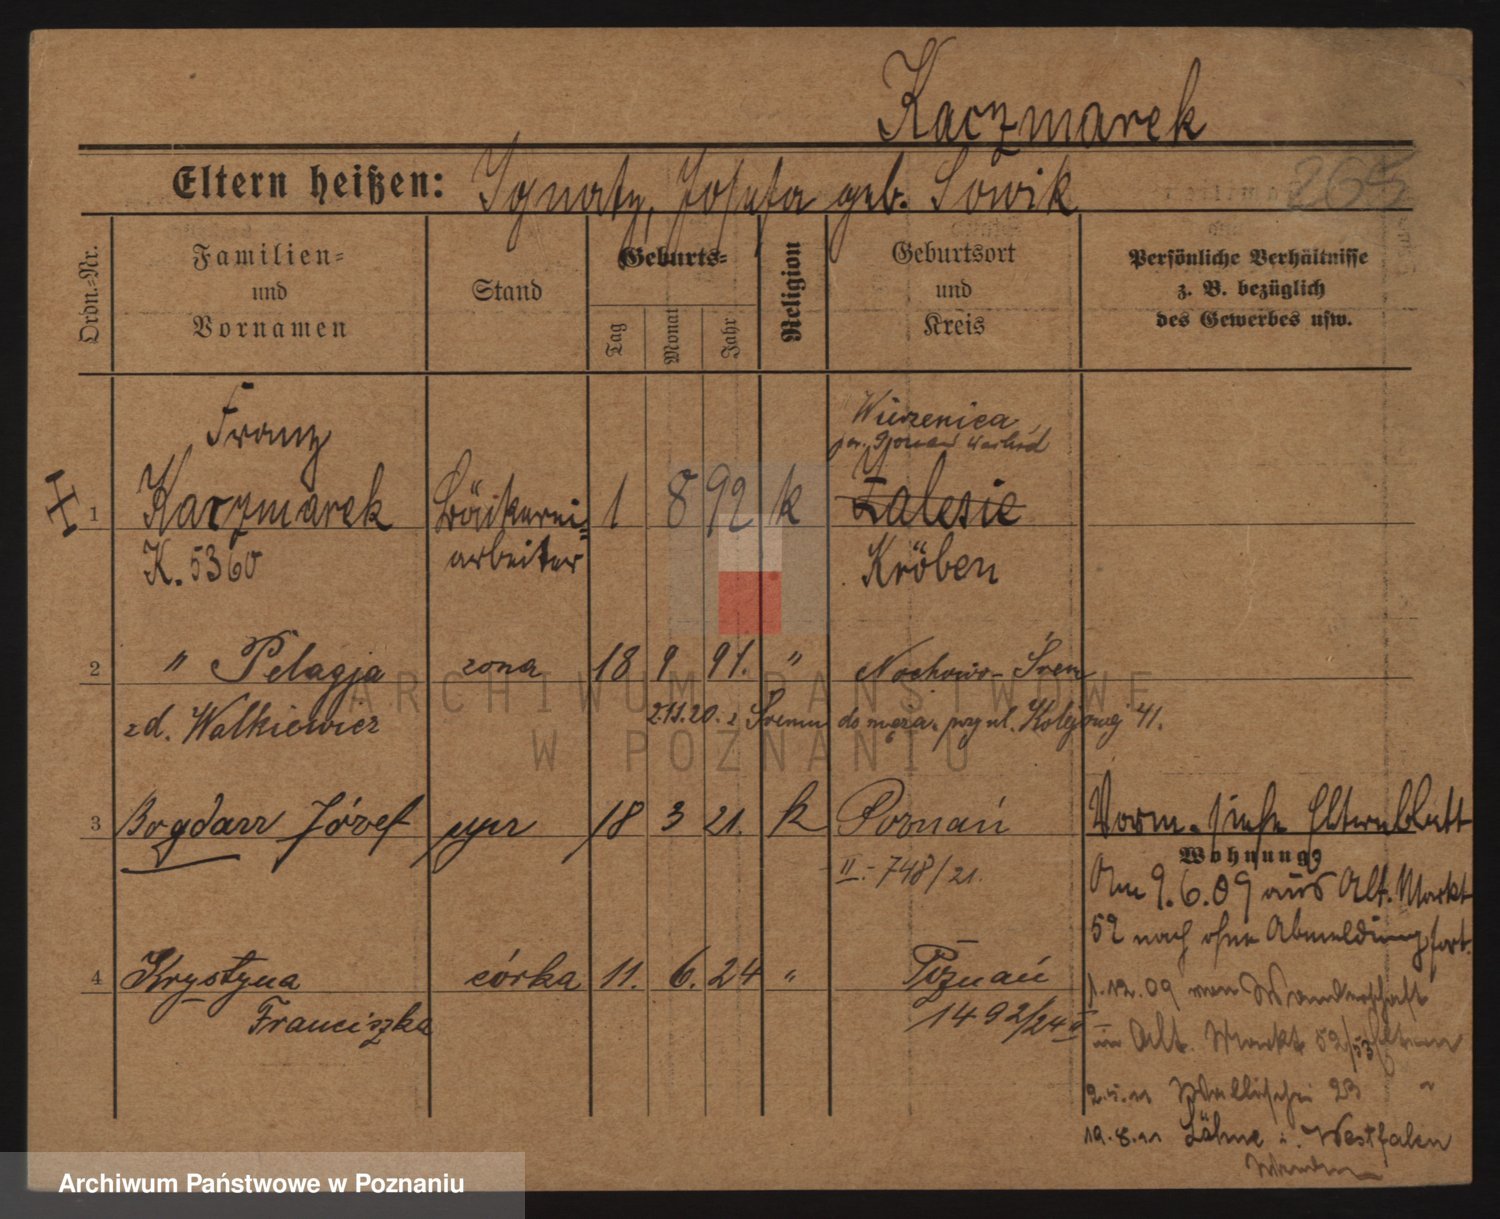 Kaczmarek
Eltern heißen: Ignatz, Josefa geb. Sówik
265
Ordn.-Nr.
Familien-
und
Vornamen
Stand
Geburts-
Tag
Monat
Jahr
Religion
Geburtsort
und
Kreis
Persönliche Verhältnisse
z. B. bezüglich
des Gewerbes usw.
Franz
Wierzenica
1 Kaczmarek 1 8 92 k Zalesie
K. 5360 arbeiter Kröben
2 " Pelagja zona 18 9 91. " Nochowo - Śrem
zd. Walkiewicz 2.11.20. z Śremu do męża. przy ul. Kolejowej 41.
3 Bogdan Józef syn 18 3 21. k Poznań
II.- 748/21.
Vorm. siehe Elternblatt
Wohnung:
Am 9.6.09 aus Alt. Markt
52 nach ohne Abmeldung fort.
4 Krystyna córka 11. 6. 24 " Poznań
Franciszka 1492/24 II
1.12.09 von Wanderschaft
Alt. Markt 52/53 Eltern
Wallischei 23 "
19.8.11 Löhne i. Westfalen
ARCHIWUM PAŃSTWOWE
W POZNANIU
Archiwum Państwowe w Poznaniu